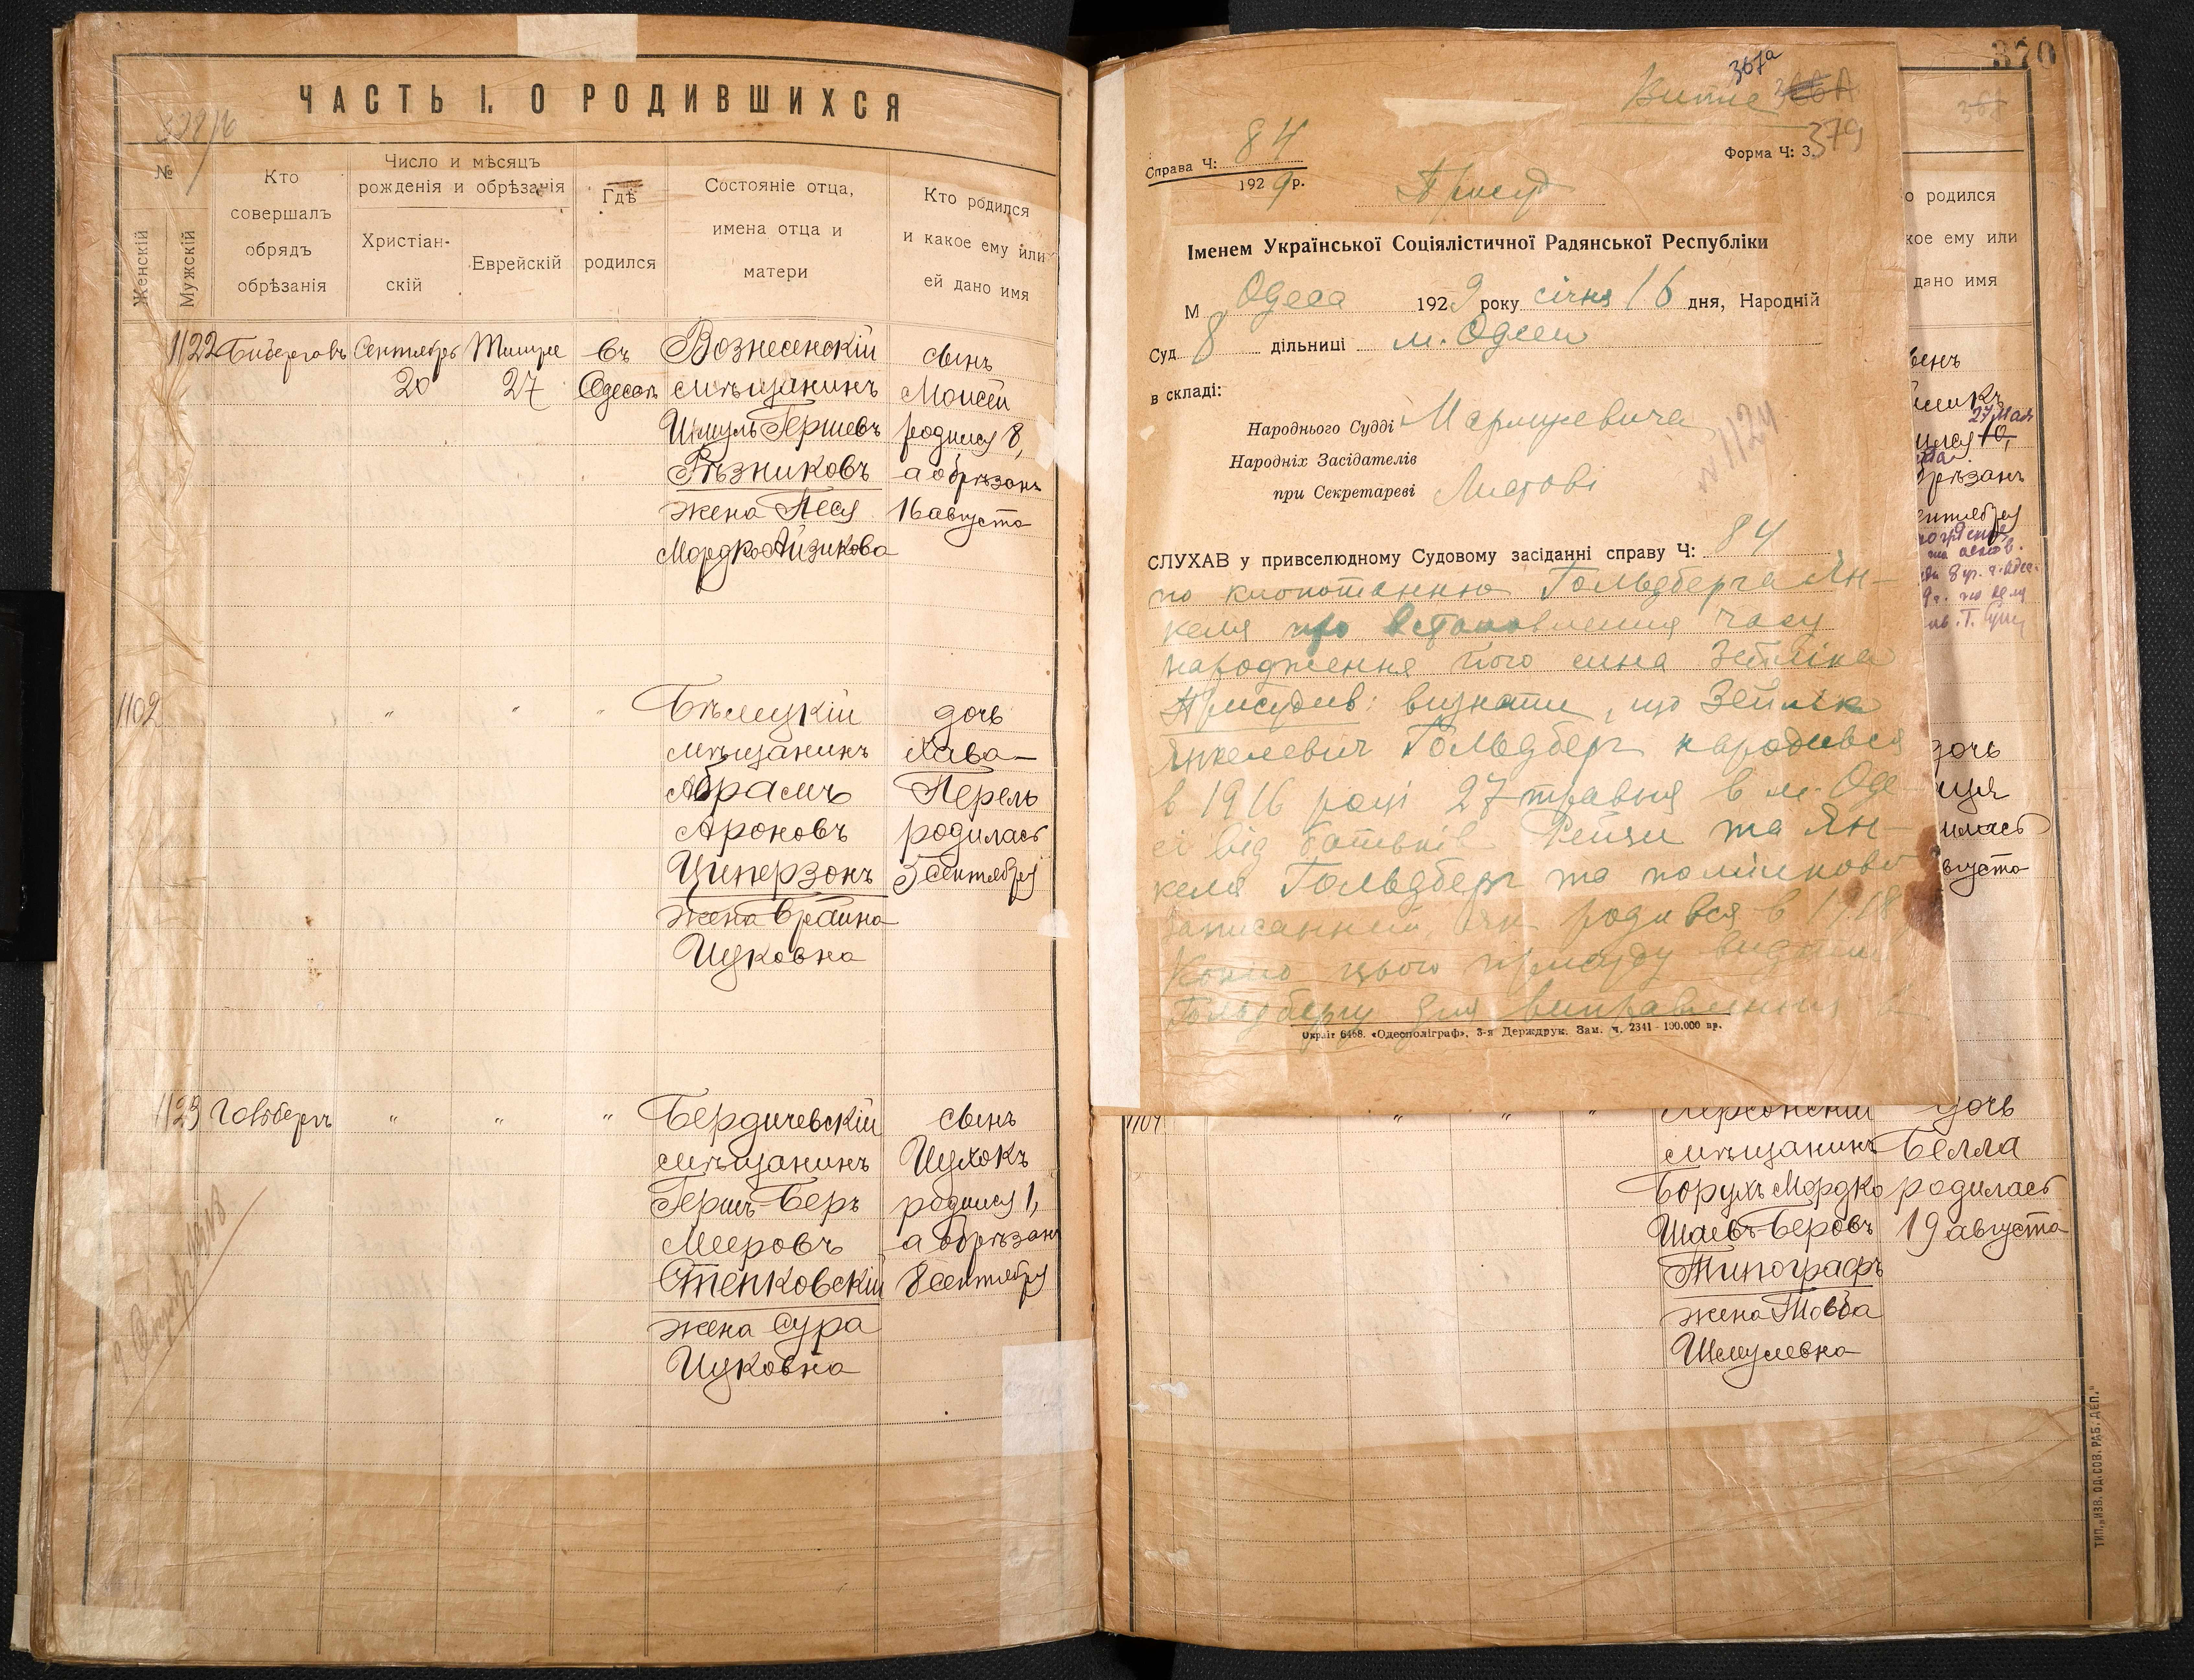 ЧАСТЬ I. О РОДИВШИХСЯ
№
Женскій
Мужскій
Кто
совершалъ
обрядъ
обрѣзанія
Число и мѣсяцъ
рожденія и обрѣзанія
Христіан-
скій
Еврейскій
Гдѣ
родился
Состояніе отца,
имена отца и
матери
Кто родился
и какое ему или
ей дано имя
1122
Сентябрь
20
Тишре
27
въ
Одессѣ
Вознесенскій
мѣщанинъ
Шмуль Гершевъ
Рѣзниковъ
жена Песя
Мордко-Айзикова
сынъ
Моисей
родился 8,
а обрѣзанъ
16 августа
1102
" " "
Бѣлецкій
мѣщанинъ
Абрамъ
Ароновъ
Циперзонъ
жена Фраина
Ицковна
дочь
Хава-
Перель
родилась
5 сентября
1123
" " "
Бердичевскій
мѣщанинъ
Гершъ-Беръ
Мееровъ
Степковскій
жена Сура
Ицковна
сынъ
Ицхокъ
родился 1,
а обрѣзанъ
8 сентября
370
367а
379
Справа Ч: 84
1929р.
Форма Ч: 3.
Присуд
Іменем Української Соціялістичної Радянської Республіки
М Одеса 1929 року січня 16 дня, Народній
Суд 8 дільниці м. Одеси
в складі:
Народнього Судді
Народніх Засідателів
при Секретареві
№1124
СЛУХАВ у привселюдному Судовому засіданні справу Ч: 84
по клопотанню Гольдберга Ян-
келя про встановлення часу
народження його сина Зейліка
Присудив: визнати, що Зейлік
Янкелевич Гольдберг народився
в 1916 році 27 травня в м. Оде-
сі від батьків Рейзи та Ян-
келя Гольдберг та помилково
записанний, як родився в 1918
Копію цього присуду видати
Гольдбергу для виправлення
Окрліт 6468. «Одесполіграф», 3-я Держдрук. Зам. ч. 2341 - 100.000 пр.
о родился
кое ему или
дано имя
27 Мая
дочь
вгуста
1104
" " "
Херсонскій
мѣщанинъ
Борухъ Мордко
Шаевъ-Беровъ
Типографъ
жена Товба
Шмулевна
дочь
Белла
родилась
19 августа
ТИП. „ИЗВ. ОД. СОВ. РАБ. ДЕП."